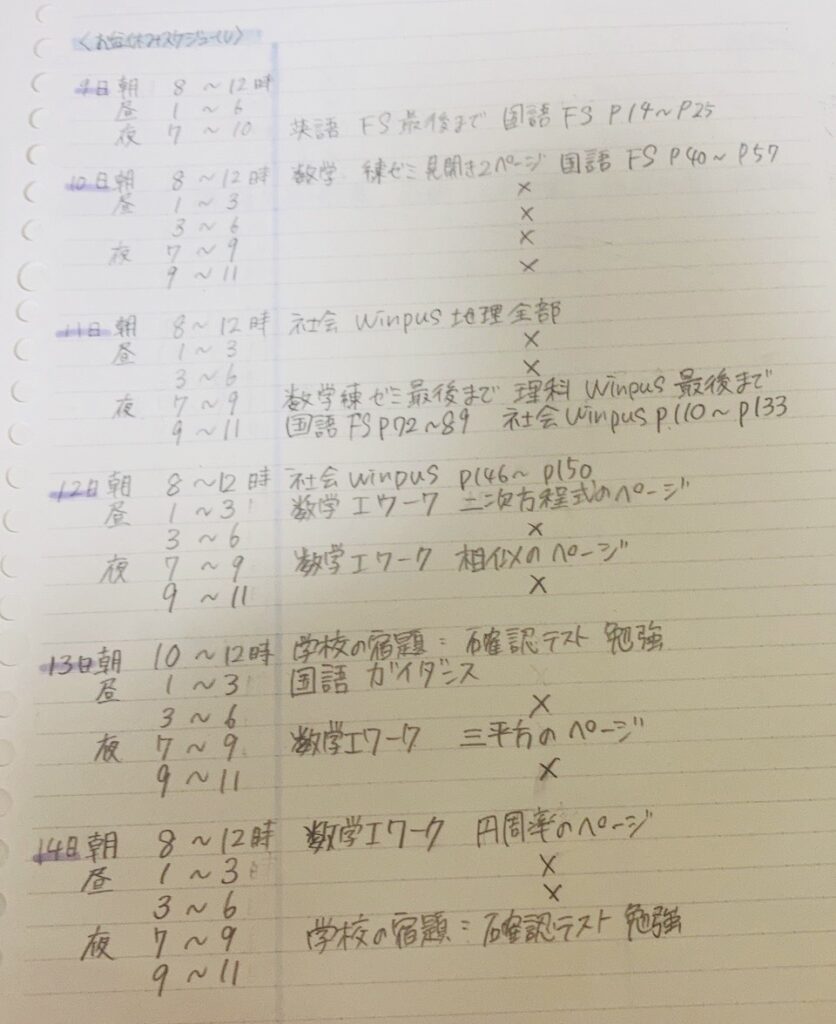 〈お盆休みスケジュール〉
9日 朝 8 ~ 12時
昼 1 ~ 6
夜 7 ~ 10 英語 FS 最後まで 国語 FS P14~P25
10日 朝 8 ~ 12時 数学 練ゼミ 見開き2ページ 国語 FS P40~P57
昼 1 ~ 3 ×
3 ~ 6 ×
夜 7 ~ 9 ×
9 ~ 11 ×
11日 朝 8 ~ 12時 社会 Winpus 地理全部
昼 1 ~ 3 ×
3 ~ 6 ×
夜 7 ~ 9 数学練ゼミ最後まで 理科 Winpus 最後まで
9 ~ 11 国語 FS P72~89 社会Winpus P.110~P133
12日 朝 8 ~ 12時 社会 Winpus P146~P150
昼 1 ~ 3 数学 エワーク 二次方程式のページ
3 ~ 6 ×
夜 7 ~ 9 数学エワーク 相似のページ
9 ~ 11 ×
13日 朝 10 ~ 12時 学校の宿題:確認テスト 勉強
昼 1 ~ 3 国語 ガイダンス
3 ~ 6 ×
夜 7 ~ 9 数学エワーク 三平方のページ
9 ~ 11 ×
14日 朝 8 ~ 12時 数学エワーク 円周率のページ
昼 1 ~ 3 ×
3 ~ 6 ×
夜 7 ~ 9 学校の宿題:確認テスト 勉強
9 ~ 11